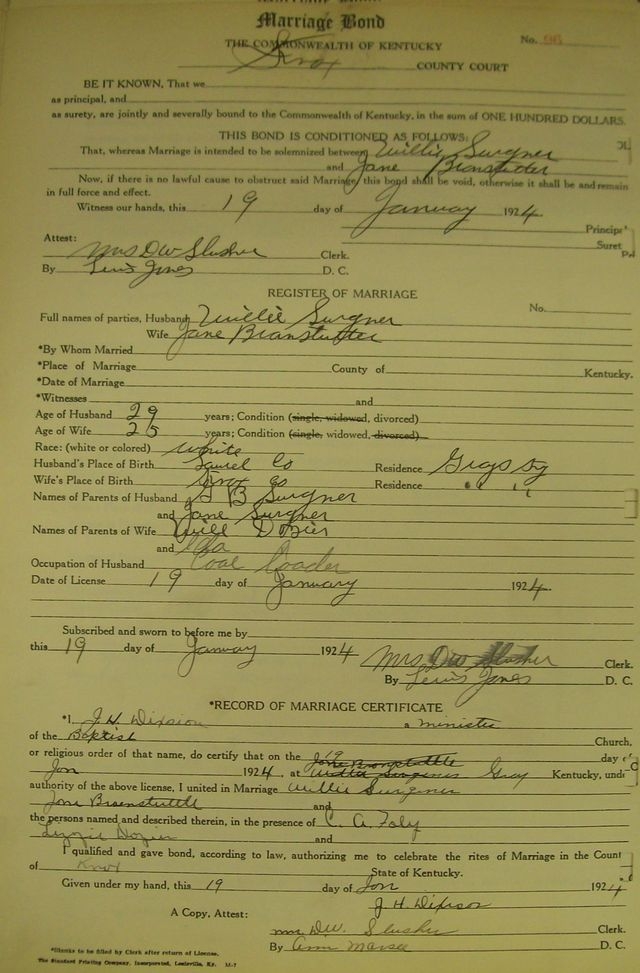 Marriage Bond
No. 96
THE COMMONWEALTH OF KENTUCKY
Knox COUNTY COURT
BE IT KNOWN, That we
as principal, and
as surety, are jointly and severally bound to the Commonwealth of Kentucky, in the sum of ONE HUNDRED DOLLARS.
THIS BOND IS CONDITIONED AS FOLLOWS:
That, whereas Marriage is intended to be solemnized between Willie Surgner
and Jane Branstutter
Now, if there is no lawful cause to obstruct said Marriage, this bond shall be void, otherwise it shall be and remain
in full force and effect.
Witness our hands, this 19 day of January 1924.
Principal
Attest: Suret
Mrs DW Slusher Clerk.
By Lewis Jones D. C.
REGISTER OF MARRIAGE
No.
Full names of parties, Husband Willie Surgner
Wife Jane Branstutter
*By Whom Married
*Place of Marriage County of Kentucky.
*Date of Marriage
*Witnesses and
Age of Husband 29 years; Condition (single, widowed, divorced)
Age of Wife 25 years; Condition (single, widowed, divorced)
Race: (white or colored) white
Husband's Place of Birth Laurel Co Residence Grays Ky
Wife's Place of Birth Knox Co Residence " "
Names of Parents of Husband B Surgner
and Jane Surgner
Names of Parents of Wife Will Dozier
and
Occupation of Husband Coal Loader
Date of License 19 day of January 1924.
Subscribed and sworn to before me by
this 19 day of January 1924 Mrs DW Slusher Clerk.
By Lewis Jones D. C.
*RECORD OF MARRIAGE CERTIFICATE
*I, J. H. Dixson a minister
of the Baptish Church,
or religious order of that name, do certify that on the 19 day of
Jan 1924, at Gray Kentucky, unde
authority of the above license, I united in Marriage Willie Surgener
Jane Branstuttle and
the persons named and described therein, in the presence of C. A. Foley
Lizzie Dozier and
I qualified and gave bond, according to law, authorizing me to celebrate the rites of Marriage in the Count
of Knox State of Kentucky.
Given under my hand, this 19 day of Jan 1924
J. H. Dixson
A Copy, Attest:
Mrs. D.W. Slusher Clerk.
By Ann Marsee D. C.
*Blanks to be filled by Clerk after return of License.
The Standard Printing Company, Incorporated, Louisville, Ky. 11-7